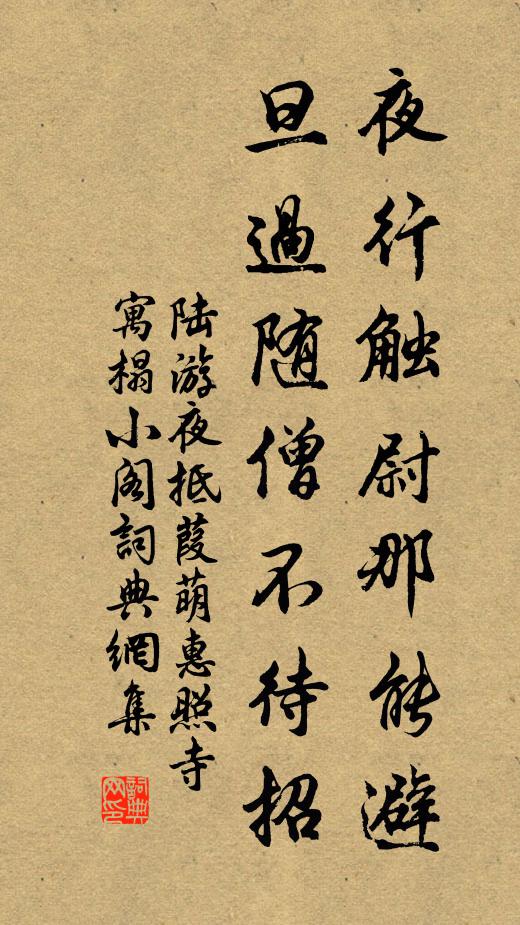 夜行触尉那能避
旦過随僧不待招
陆游夜抵葭萌惠照寺
寓榻小阁詞典網集
詞典网印